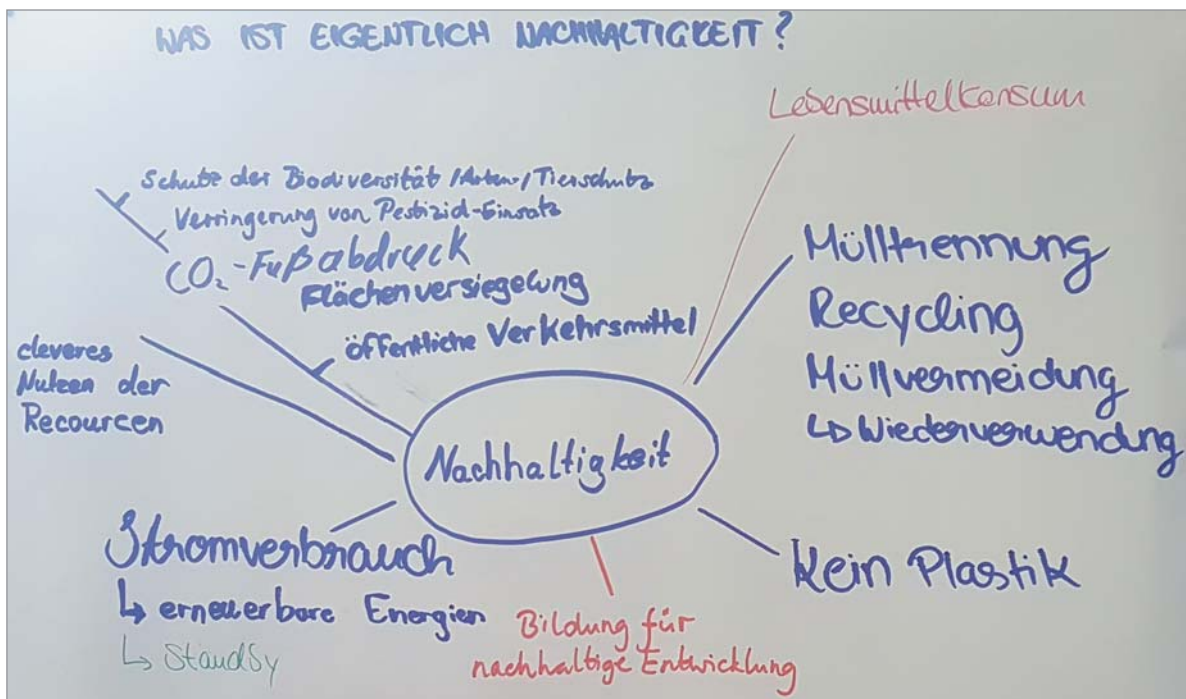 WAS IST EIGENTLICH NACHHALTIGKEIT?
Lebensmittelkonsum
Schutz der Biodiversität /Arten-/Tierschutz
Verringerung von Pestizid-Einsatz
CO₂-Fußabdruck
Flächenversiegelung
öffentliche Verkehrsmittel
cleveres
Nutzen der
Recourcen
Mülltrennung
Recycling
Müllvermeidung
↳ Wiederverwendung
Nachhaltigkeit
Stromverbrauch
↳ erneuerbare Energien
↳ Standby
Bildung für
nachhaltige Entwicklung
Kein Plastik